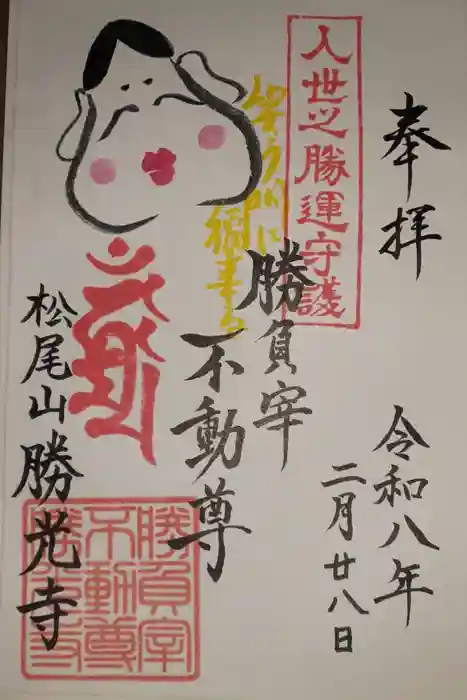 奉拝
令和八年
二月廿八日
人世之勝運守護
笑う門に
福来る
勝負宰
不動尊
松尾山勝光寺
勝負宰
不動尊
勝光寺